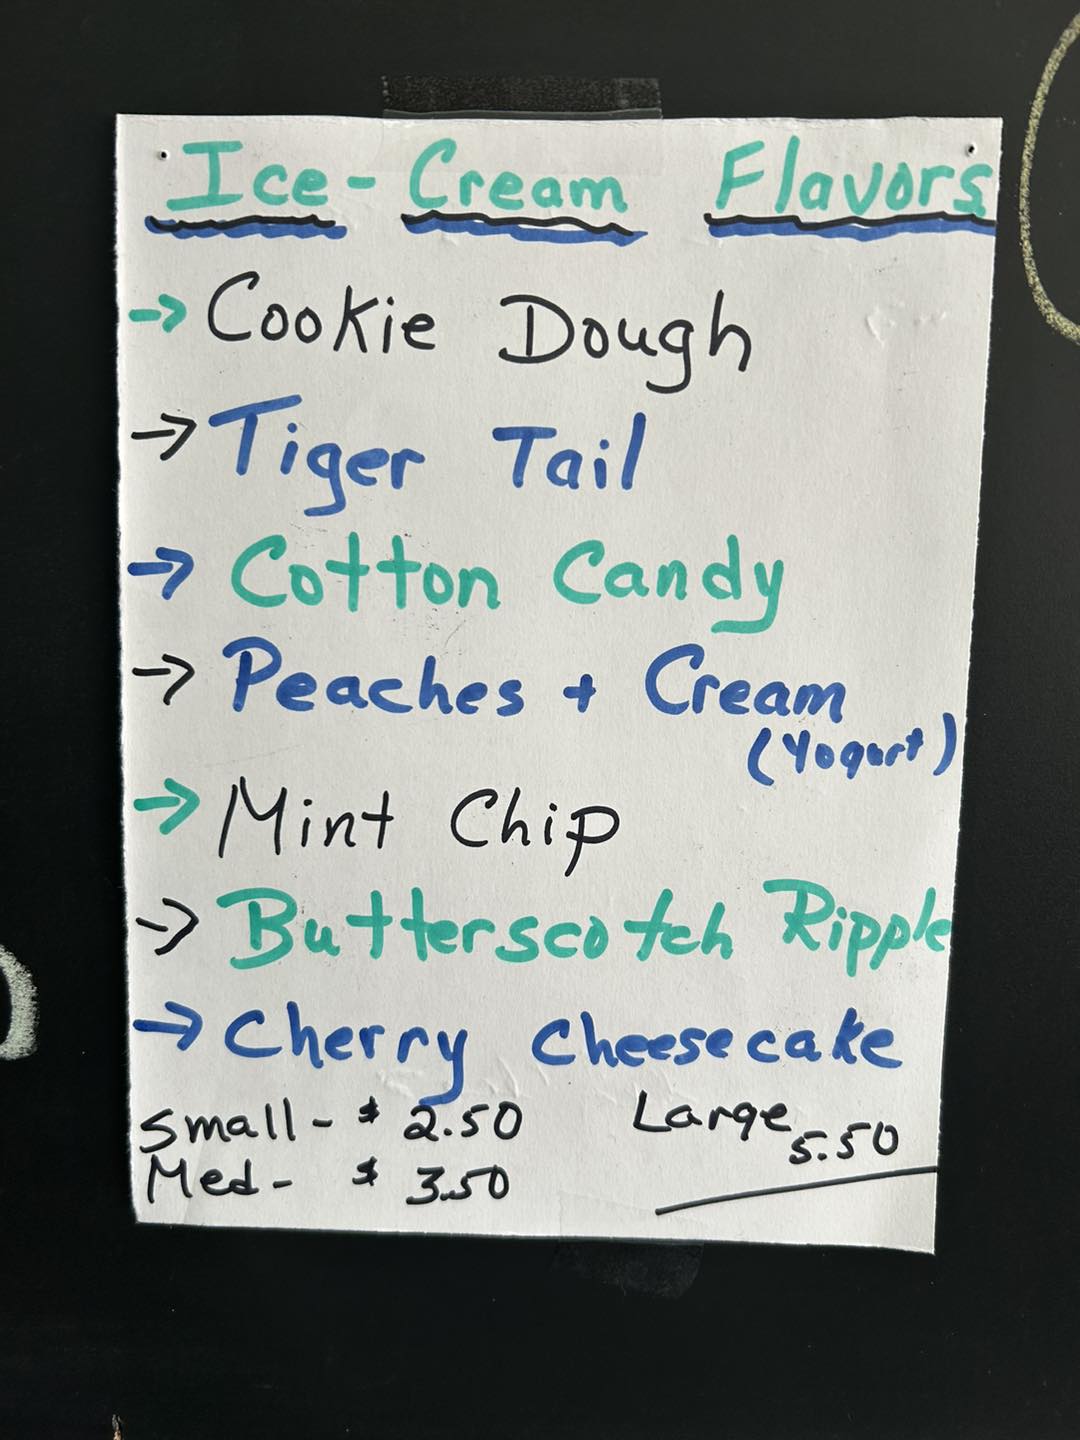 Ice-Cream Flavors
→ Cookie Dough
→ Tiger Tail
→ Cotton Candy
→ Peaches + Cream
(Yogurt)
→ Mint Chip
→ Butterscotch Ripple
→ Cherry Cheesecake
Small - $ 2.50 Large 5.50
Med - $ 3.50